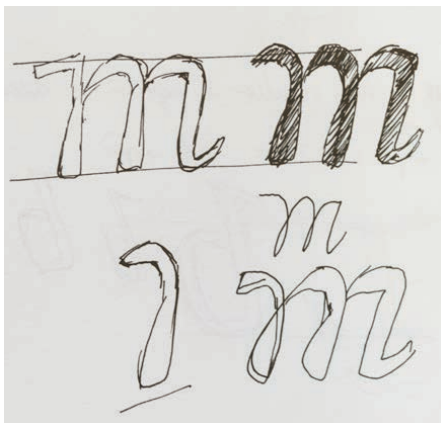 m m
m
1 m